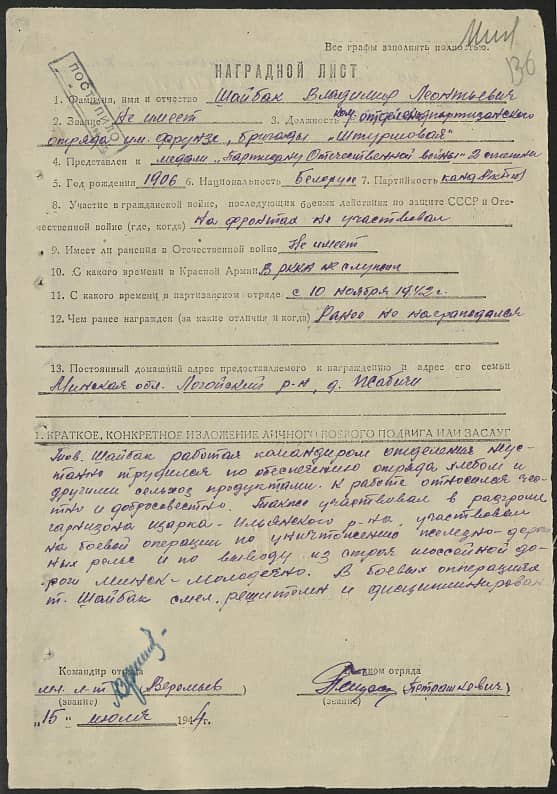 Все графы заполнять полностью.
136
ПОСТУПИЛО
НАГРАДНОЙ ЛИСТ
1. Фамилия, имя и отчество Шайбак Владимир Леонтьевич
2. Звание Не имеет 3. Должность ком. отделен партизанского
отряда им. Фрунзе, бригады "Штурмовая"
4. Представлен к медали "Партизану Отечественной войны" 2 степени
5. Год рождения 1906 6. Национальность Белорус 7. Партийность канд.
8. Участие в гражданской войне, последующих боевых действиях по защите СССР и Оте-
чественной войне (где, когда) на фронтах не участвовал
9. Имеет ли ранения в Отечественной войне Не имеет
10. С какого времени в Красной Армии В РККА не служил
11. С какого времени в партизанском отряде с 10 ноября 1942 г.
12. Чем ранее награжден (за какие отличия и когда) Ранее не награждался
13. Постоянный домашний адрес предоставляемого к награждению и адрес его семьи
Минская обл. Логойский р-н, д. Жабичи
I. КРАТКОЕ, КОНКРЕТНОЕ ИЗЛОЖЕНИЕ ЛИЧНОГО БОЕВОГО ПОДВИГА ИЛИ ЗАСЛУГ
Тов. Шайбак работая командиром отделения неус-
танно трудился по обеспечению отряда хлебом и
другими сельхоз продуктами. К работе относился чес-
тно и добросовестно. Также участвовал в разгроме
гарнизона Ильянского р-на, участвовал
на боевой операции по уничтожению железно-дорож
ных рельс и по выводу из строя шоссейной до-
роги Минск-Молодечно. В боевых операциях
т. Шайбак смел, решителен и дисциплинирован
Командир отряда
мл. л-т (Веремьев)
(звание)
отряда
(Петрашкевич)
(звание)
"15" июля 1944 г.